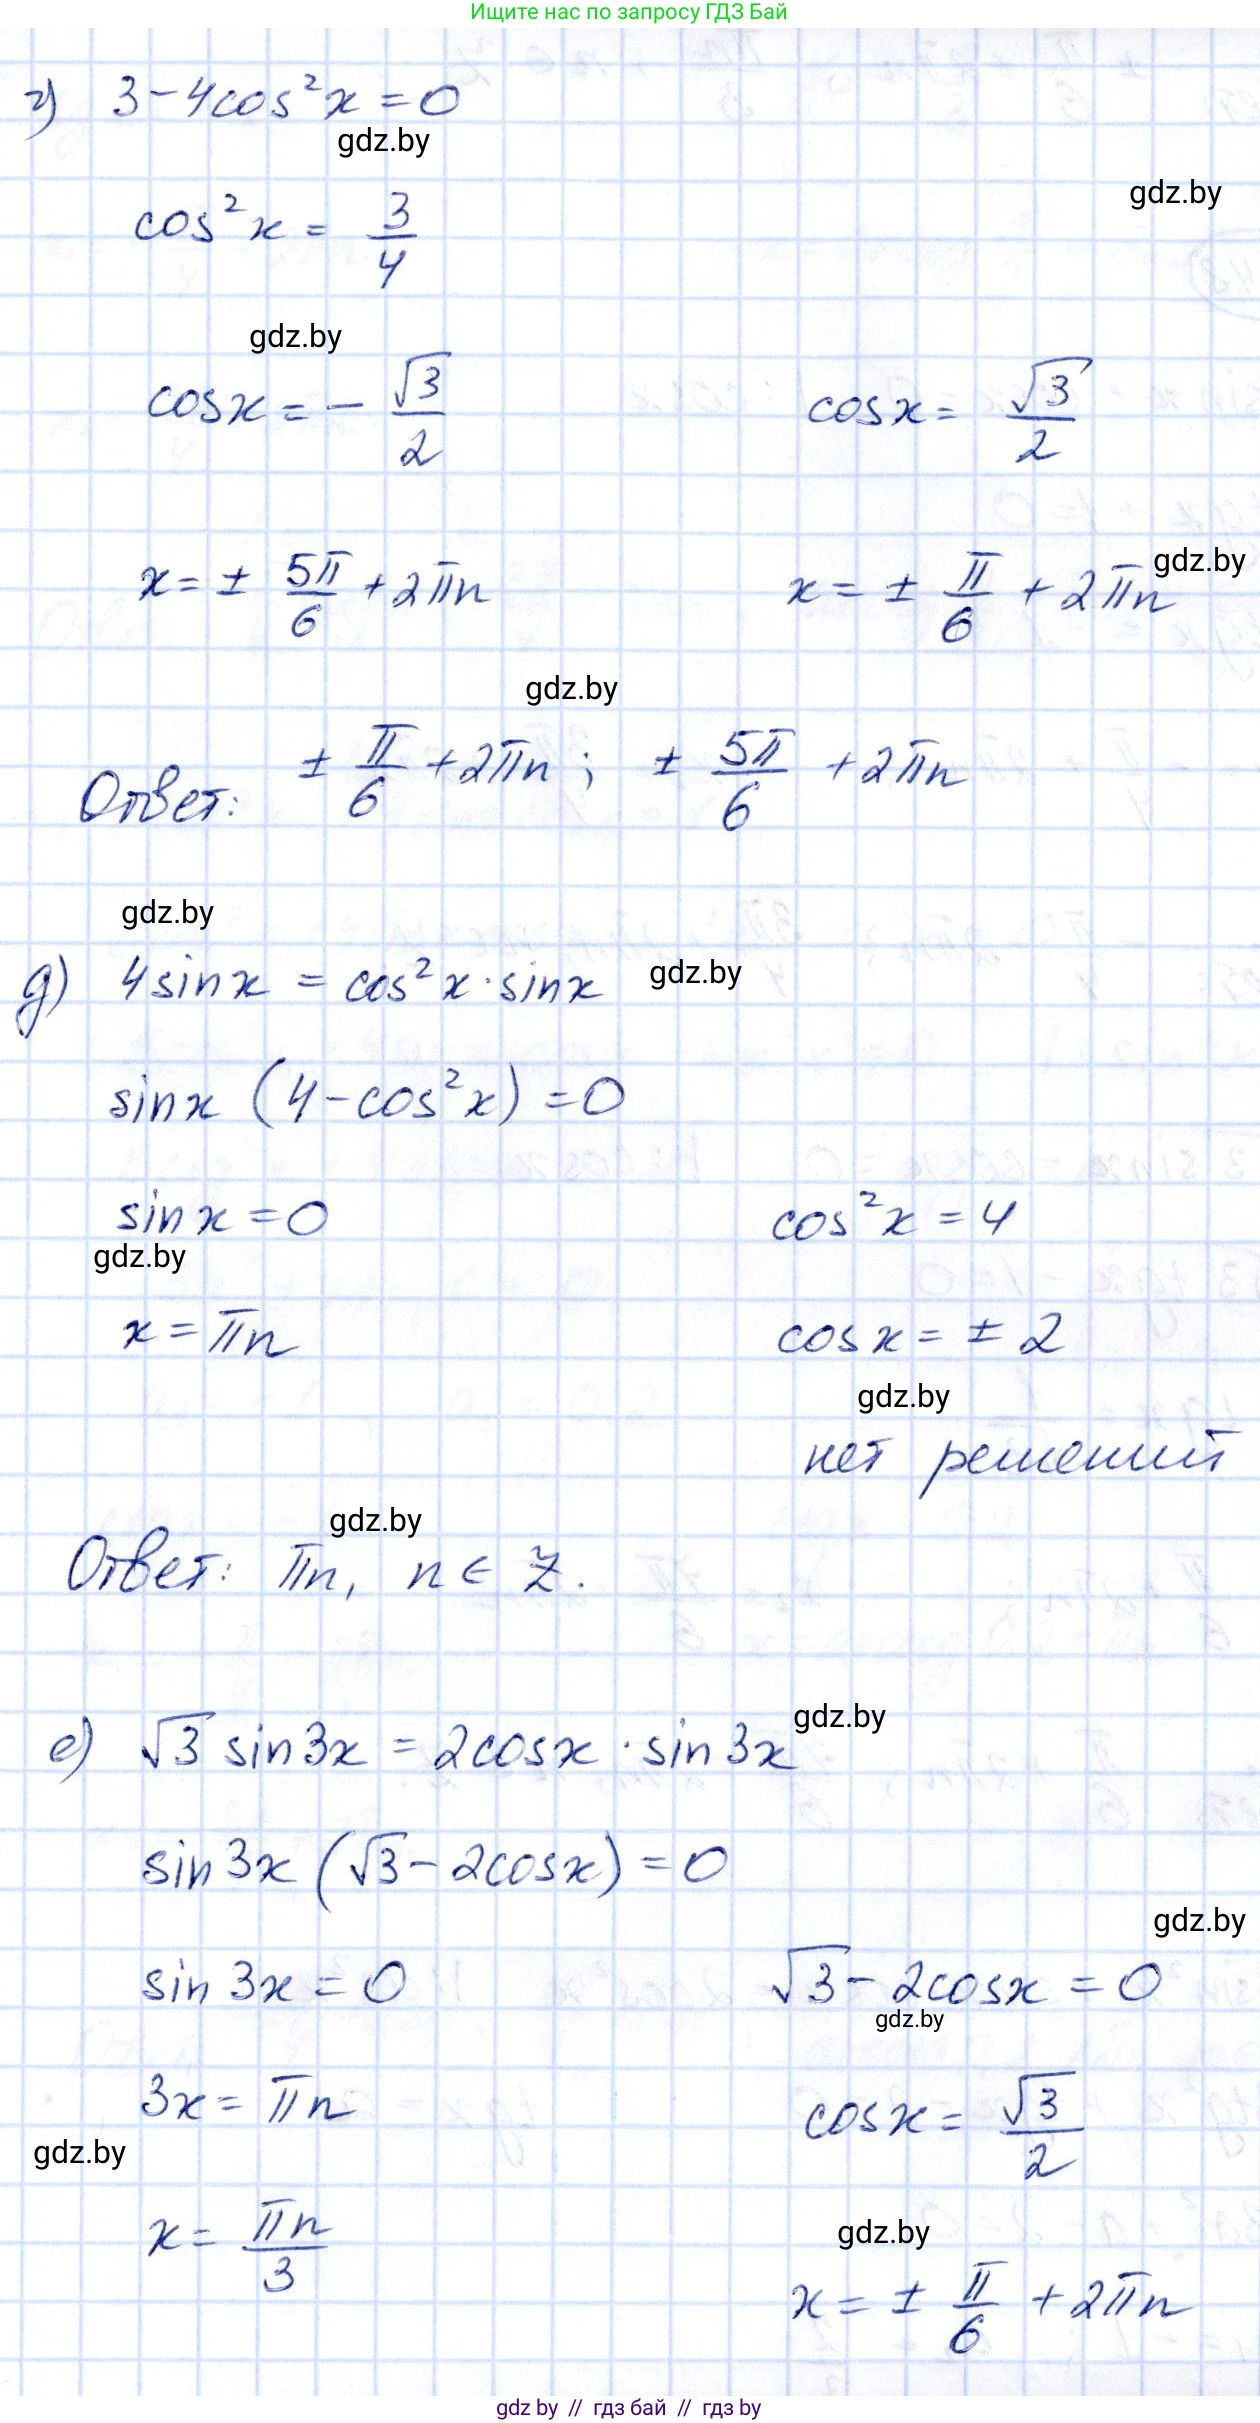 Ищите нас по запросу ГДЗ Бай
г) 3-4cos²x=0
gdz.by
gdz.by
cos²x = 3/4
gdz.by
cosx = - √3/2    cosx = √3/2
x = ± 5π/6 + 2πn    x = ± π/6 + 2πn
gdz.by
gdz.by
Ответ: ± π/6 + 2πn ; ± 5π/6 + 2πn
gdz.by
д) 4sinx = cos²x·sinx
gdz.by
sinx (4-cos²x) = 0
sinx = 0    cos²x = 4
gdz.by
x = πn    cosx = ± 2
gdz.by
нет решений
gdz.by
Ответ: πn, n ∈ Z.
е) √3 sin3x = 2cosx · sin3x
gdz.by
sin3x (√3 - 2cosx) = 0
gdz.by
sin3x = 0    √3 - 2cosx = 0
gdz.by
3x = πn    cosx = √3/2
gdz.by
x = πn/3
gdz.by
x = ± π/6 + 2πn
gdz by // гдз бай // гдз by